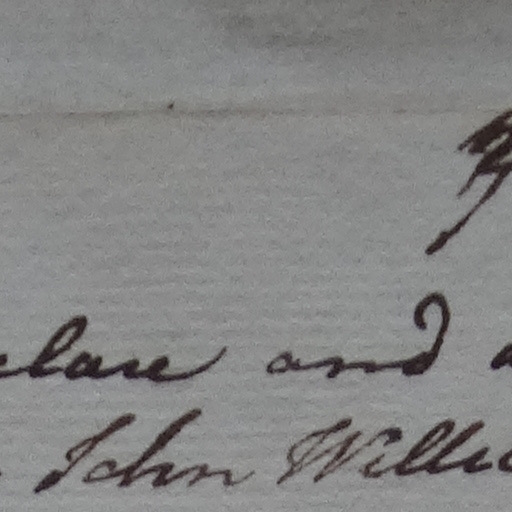 clare and
John Willi